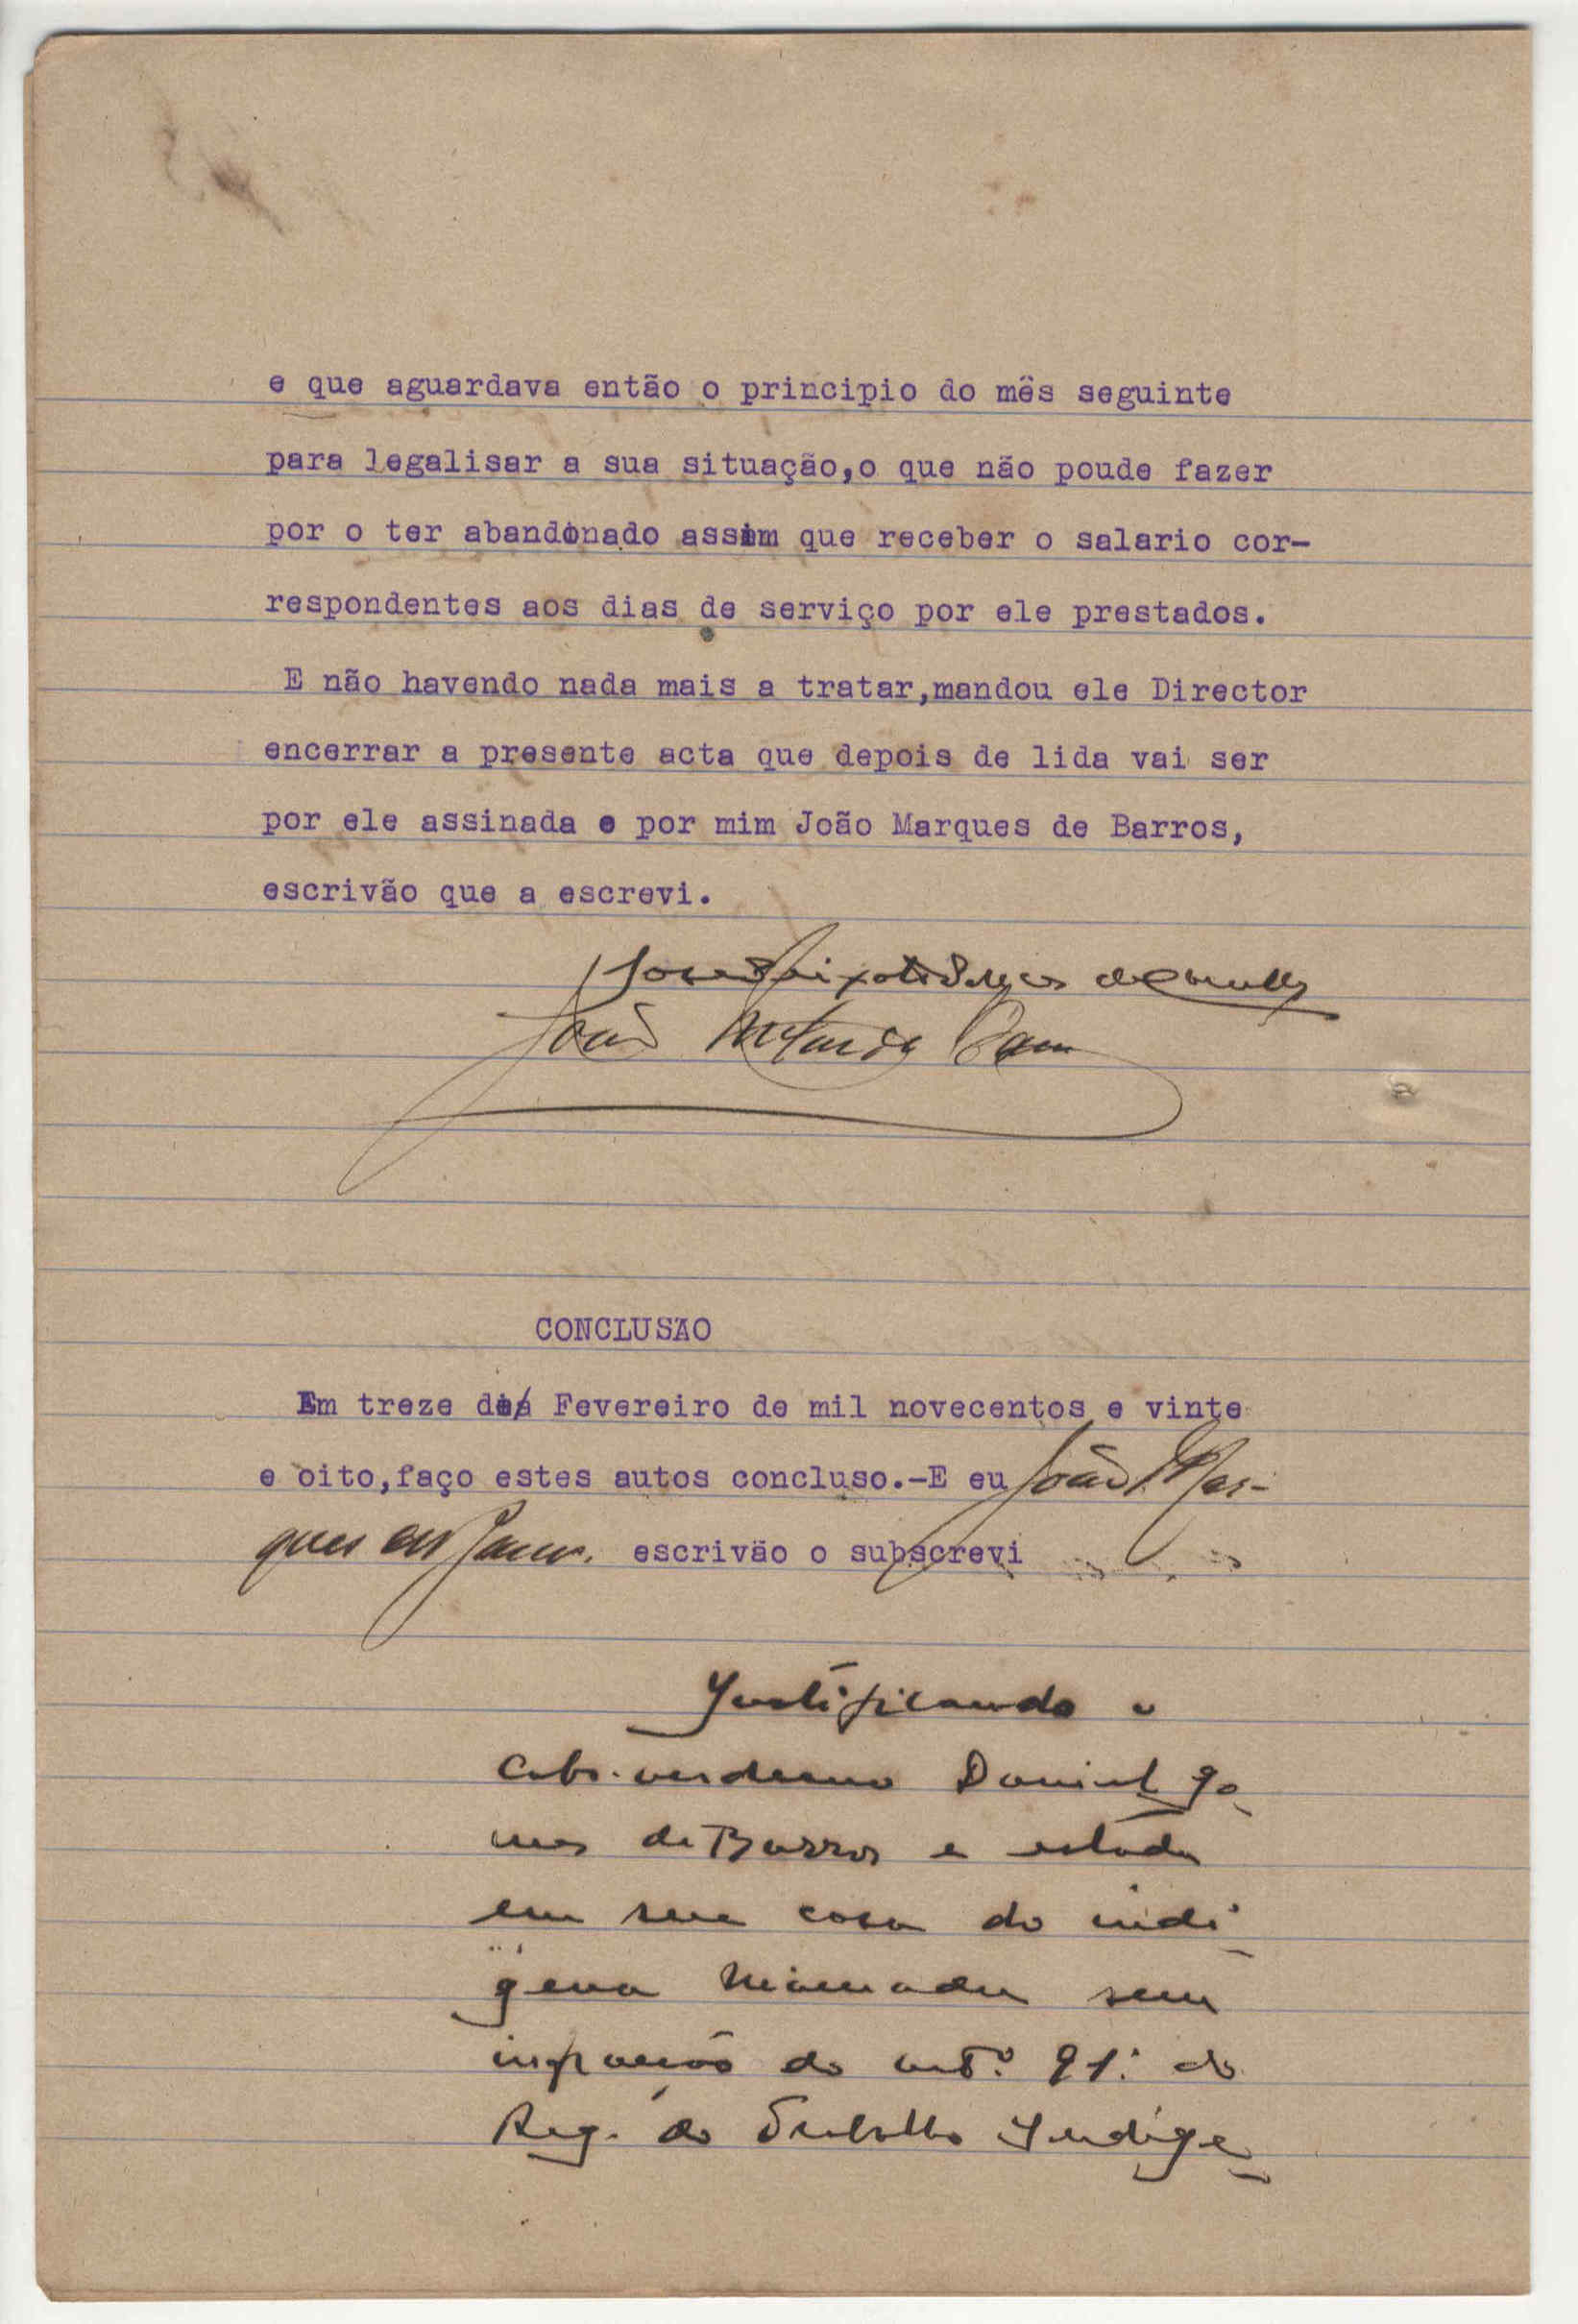 e que aguardava então o principio do mês seguinte
para legalisar a sua situação,o que não poude fazer
por o ter abandonado assim que receber o salario cor-
respondentes aos dias de serviço por ele prestados.
E não havendo nada mais a tratar,mandou ele Director
encerrar a presente acta que depois de lida vai ser
por ele assinada e por mim João Marques de Barros,
escrivão que a escrevi.
José Peixoto
João Marques Barros
CONCLUSÃO
Em treze de Fevereiro de mil novecentos e vinte
e oito,faço estes autos concluso.-E eu João Mar-
ques de Barros. escrivão o subscrevi
Justificando o
Cabo-verdeano Daniel Go-
mes de Barros a estada
em sua casa do indi-
gena Mamadu sem
infracção do art.º 91.º do
Reg. do Trabalho Indige-